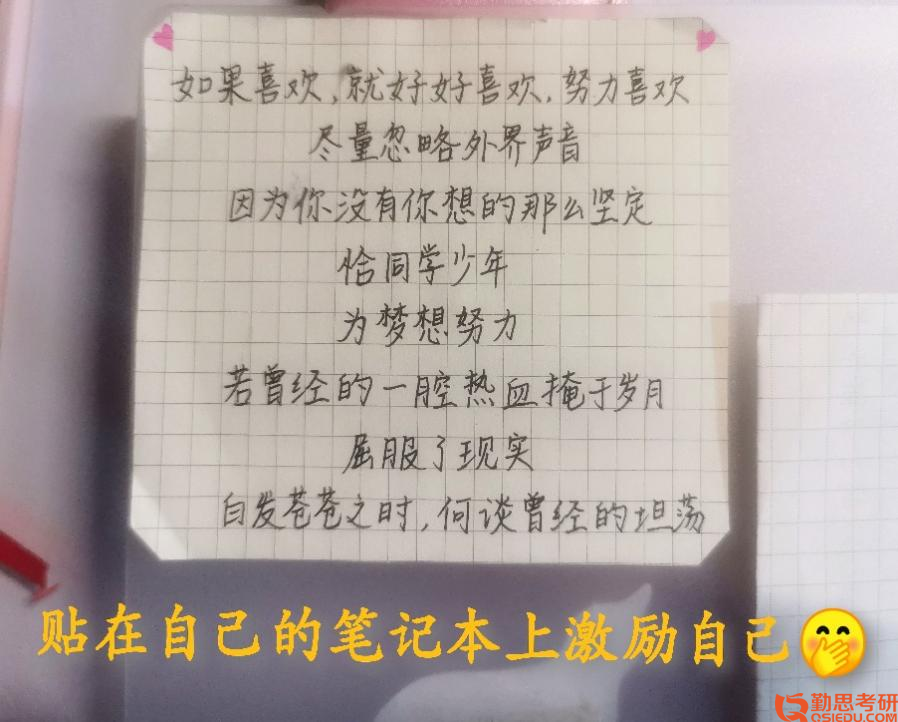 如果喜欢，就好好喜欢，努力喜欢
尽量忽略外界声音
因为你没有你想的那么坚定
恰同学少年
为梦想努力
若曾经的一腔热血掩于岁月
屈服了现实
白发苍苍之时，何谈曾经的坦荡
贴在自己的笔记本上激励自己🤭
勤思考研
QSIEDU.COM